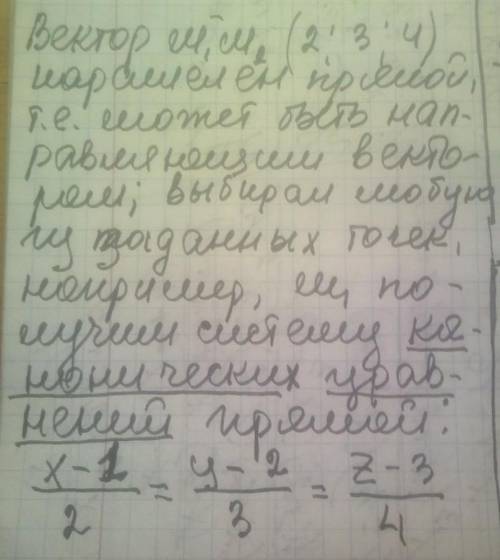 Вектор M₁M₂ (2; 3; 4)
параллелен прямой,
т.е. может быть нап-
равляющим векто-
ром; выбирая любую
из заданных точек,
например, M₁ по-
лучим систему ка-
нонических урав-
нений прямой:
x-1/2 = y-2/3 = z-3/4